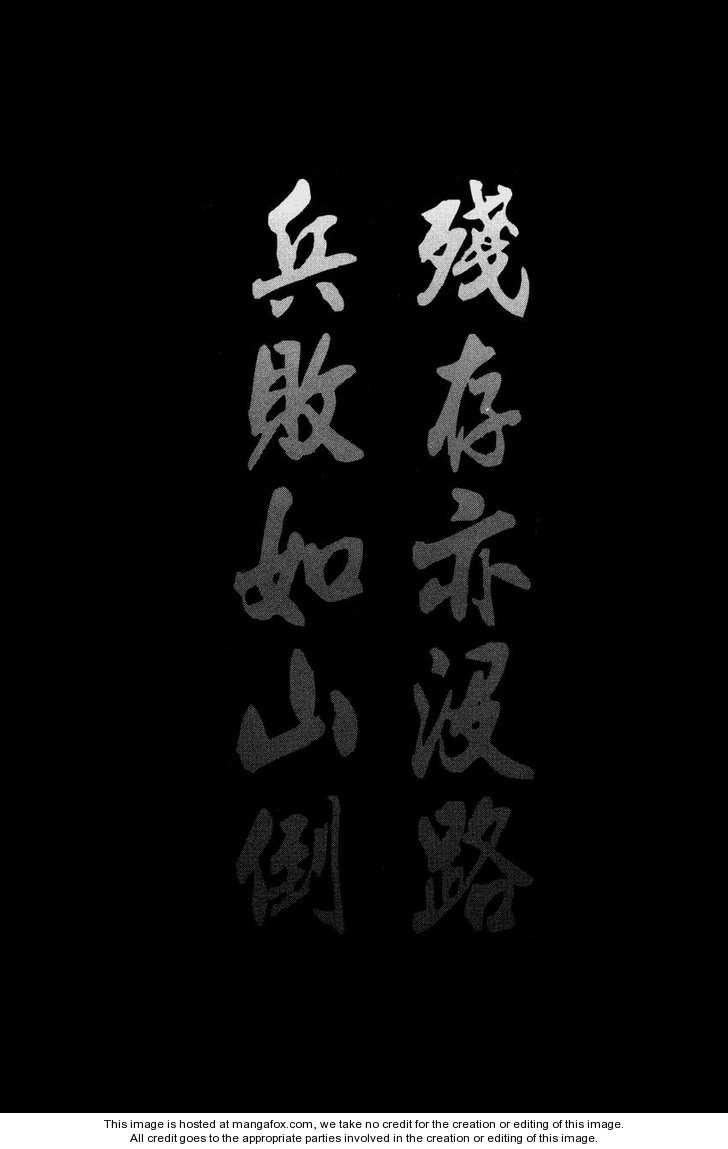 殘存亦沒路
兵敗如山倒
This image is hosted at mangafox.com, we take no credit for the creation or editing of this image.
All credit goes to the appropriate parties involved in the creation or editing of this image.